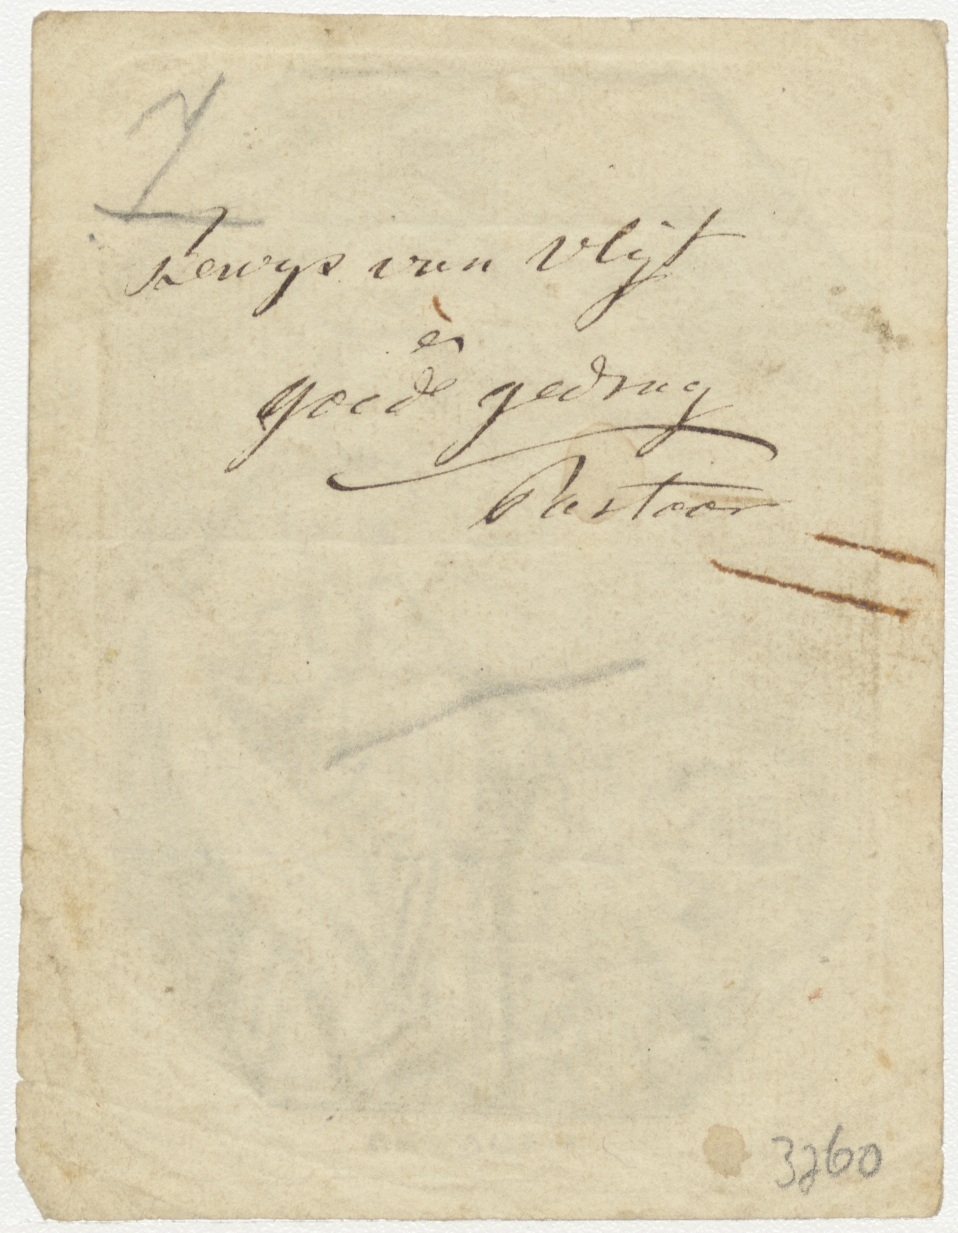 Bewys van Vlijt
en
goede gedrag
Pastoor
3260